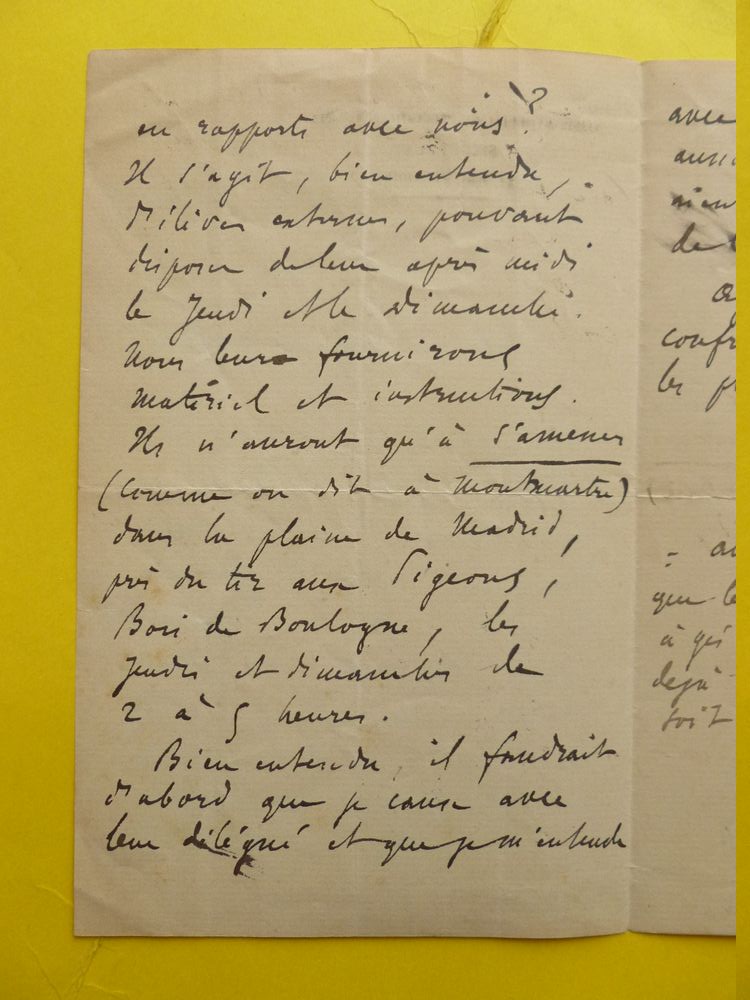 en rapports avec nous ?
Il s'agit, bien entendu,
d'élèves externes, pouvant
disposer de leur après midi
le Jeudi et le Dimanche.
Nous leur fournirons
matériel et instructions.
Ils n'auront qu'à s'amener
(comme on dit à Montmartre)
dans la plaine de Madrid,
près du tir aux Pigeons,
Bois de Boulogne, les
jeudis et dimanches de
2 à 5 heures.
Bien entendu, il faudrait
d'abord que je cause avec
leur délégué et que je m'entende
avec
aussi
de
confr
les
que le
à
déjà
soit